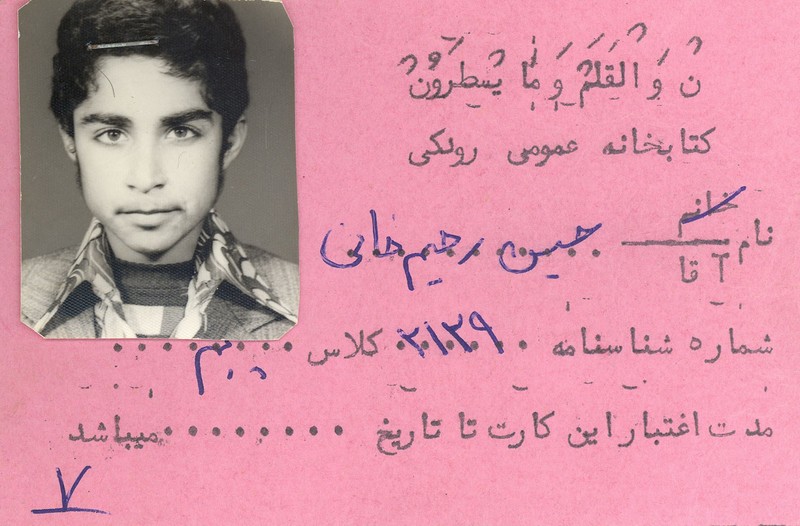 نٓ وَالْقَلَمِ وَ مَا يَسْطُرُونَ
کتابخانه عمومی رونکی
نام خانم / آقا حسین رحیم خانی
شماره شناسنامه ۳۱۳۹ کلاس دهم
مدت اغتبار این کارت تا تاریخ ........ میباشد
۷